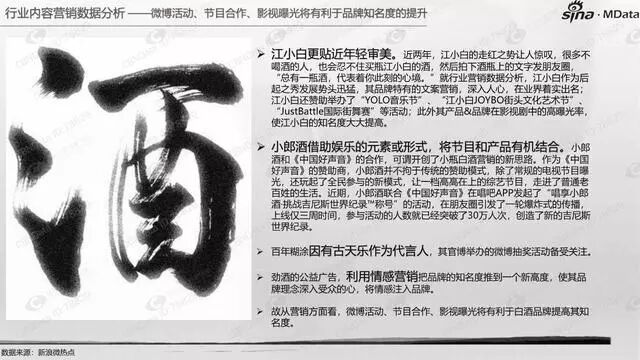 行业内容营销数据分析 ——微博活动、节目合作、影视曝光将有利于品牌知名度的提升
sina · MData
酒
➢ 江小白更贴近年轻审美。近两年，江小白的走红之势让人惊叹，很多不
喝酒的人，也会忍不住买瓶江小白的酒，然后拍下酒瓶上的文案发朋友圈，
“总有一瓶酒，代表着你此刻的心境。”就行业营销数据分析，江小白作为后
起之秀发展势头迅猛，其品牌特有的文案营销，深入人心，在业界着实出名；
江小白还赞助举办了“YOLO音乐节”、“江小白JOYBO街头文化艺术节”、
“JustBattle国际街舞赛”等活动；此外其产品&品牌在影视剧中的高曝光率，
使江小白的知名度大大提高。
➢ 小郎酒借助娱乐的元素或形式，将节目和产品有机结合。小郎
酒和《中国好声音》的合作，可谓开创了小瓶白酒营销的新思路。作为《中国
好声音》的赞助商，小郎酒并不拘于传统的赞助模式，除了常规的电视节目曝
光，还玩起了全民参与的新模式，让一档高高在上的综艺节目，走进了普通老
百姓的生活。近期，小郎酒联合《中国好声音》在唱吧APP发起了“唱享小郎
酒·挑战吉尼斯世界纪录™称号”的活动，在朋友圈引发了一轮爆炸式的传播，
上线仅三周时间，参与活动的人数就已经突破了30万人次，创造了新的吉尼斯
世界纪录。
➢ 百年糊涂因有古天乐作为代言人，其官博举办的微博抽奖活动备受关注。
➢ 劲酒的公益广告，利用情感营销把品牌的知名度推到一个新高度，使其品
牌理念深入受众的心，将情感注入品牌。
➢ 故从营销方面看，微博活动、节目合作、影视曝光将有利于白酒品牌提高其知
名度。
数据来源：新浪微热点